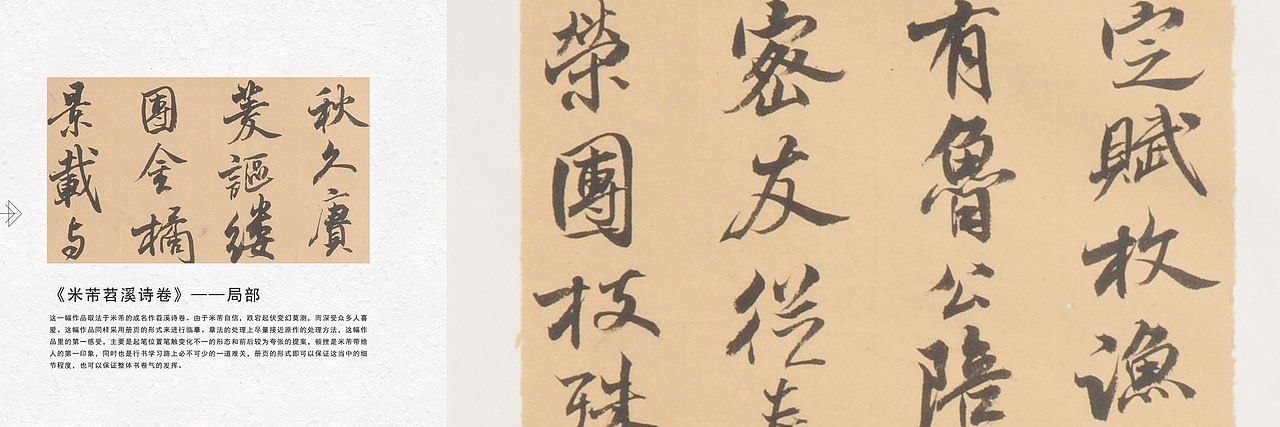 秋久賡
菱謳縷
團金橘
景載与
《米芾苕溪诗卷》——局部
这一幅作品取法于米芾的成名作苕溪诗卷。由于米芾自信，跌宕起伏变幻莫测，而深受众多人喜
爱。这幅作品同样采用册页的形式来进行临摹。章法的处理上尽量接近原作的处理方法，这幅作
品里的第一感受，主要是起笔位置笔触变化不一的形态和前后较为夸张的提案，顿挫是米芾带给
人的第一印象，同时也是行书学习路上必不可少的一道难关，册页的形式即可以保证这当中的细
节程度，也可以保证整体书卷气的发挥。
定賦枚漁
有魯公陪
密友從
榮團枝殊